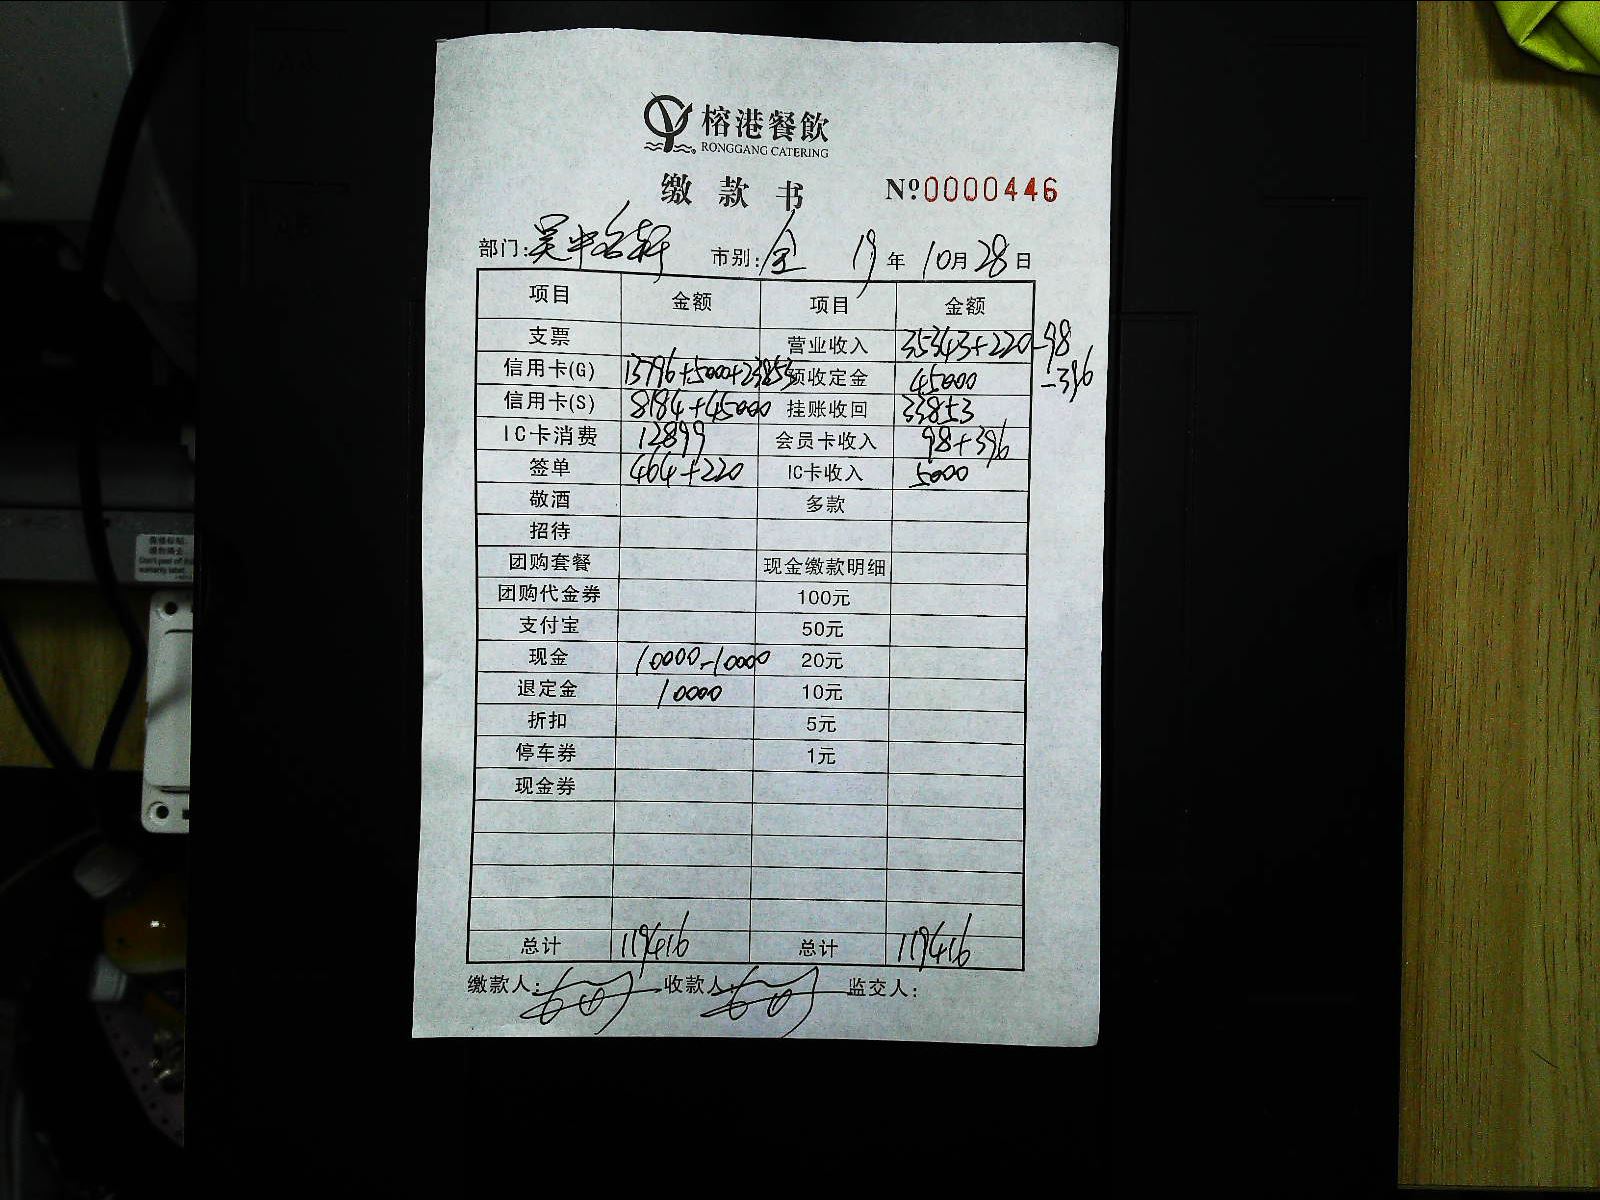 榕港餐飲
RONGGANG CATERING
缴款书 Nº.0000446
部门:吴中名轩 市别:全 19年10月28日
项目 金额 项目 金额
支票 营业收入 35343+220-98
-396
信用卡(G) 13796+5000+23853 预收定金 45000
信用卡(S) 8184+45000 挂账收回 33853
IC卡消费 12899 会员卡收入 98+396
签单 464+220 IC卡收入 5000
敬酒 多款
招待
团购套餐 现金缴款明细
团购代金券 100元
支付宝 50元
现金 10000-10000 20元
退定金 10000 10元
折扣 5元
停车券 1元
现金券
总计 119416 总计 119416
缴款人: 收款人: 监交人: